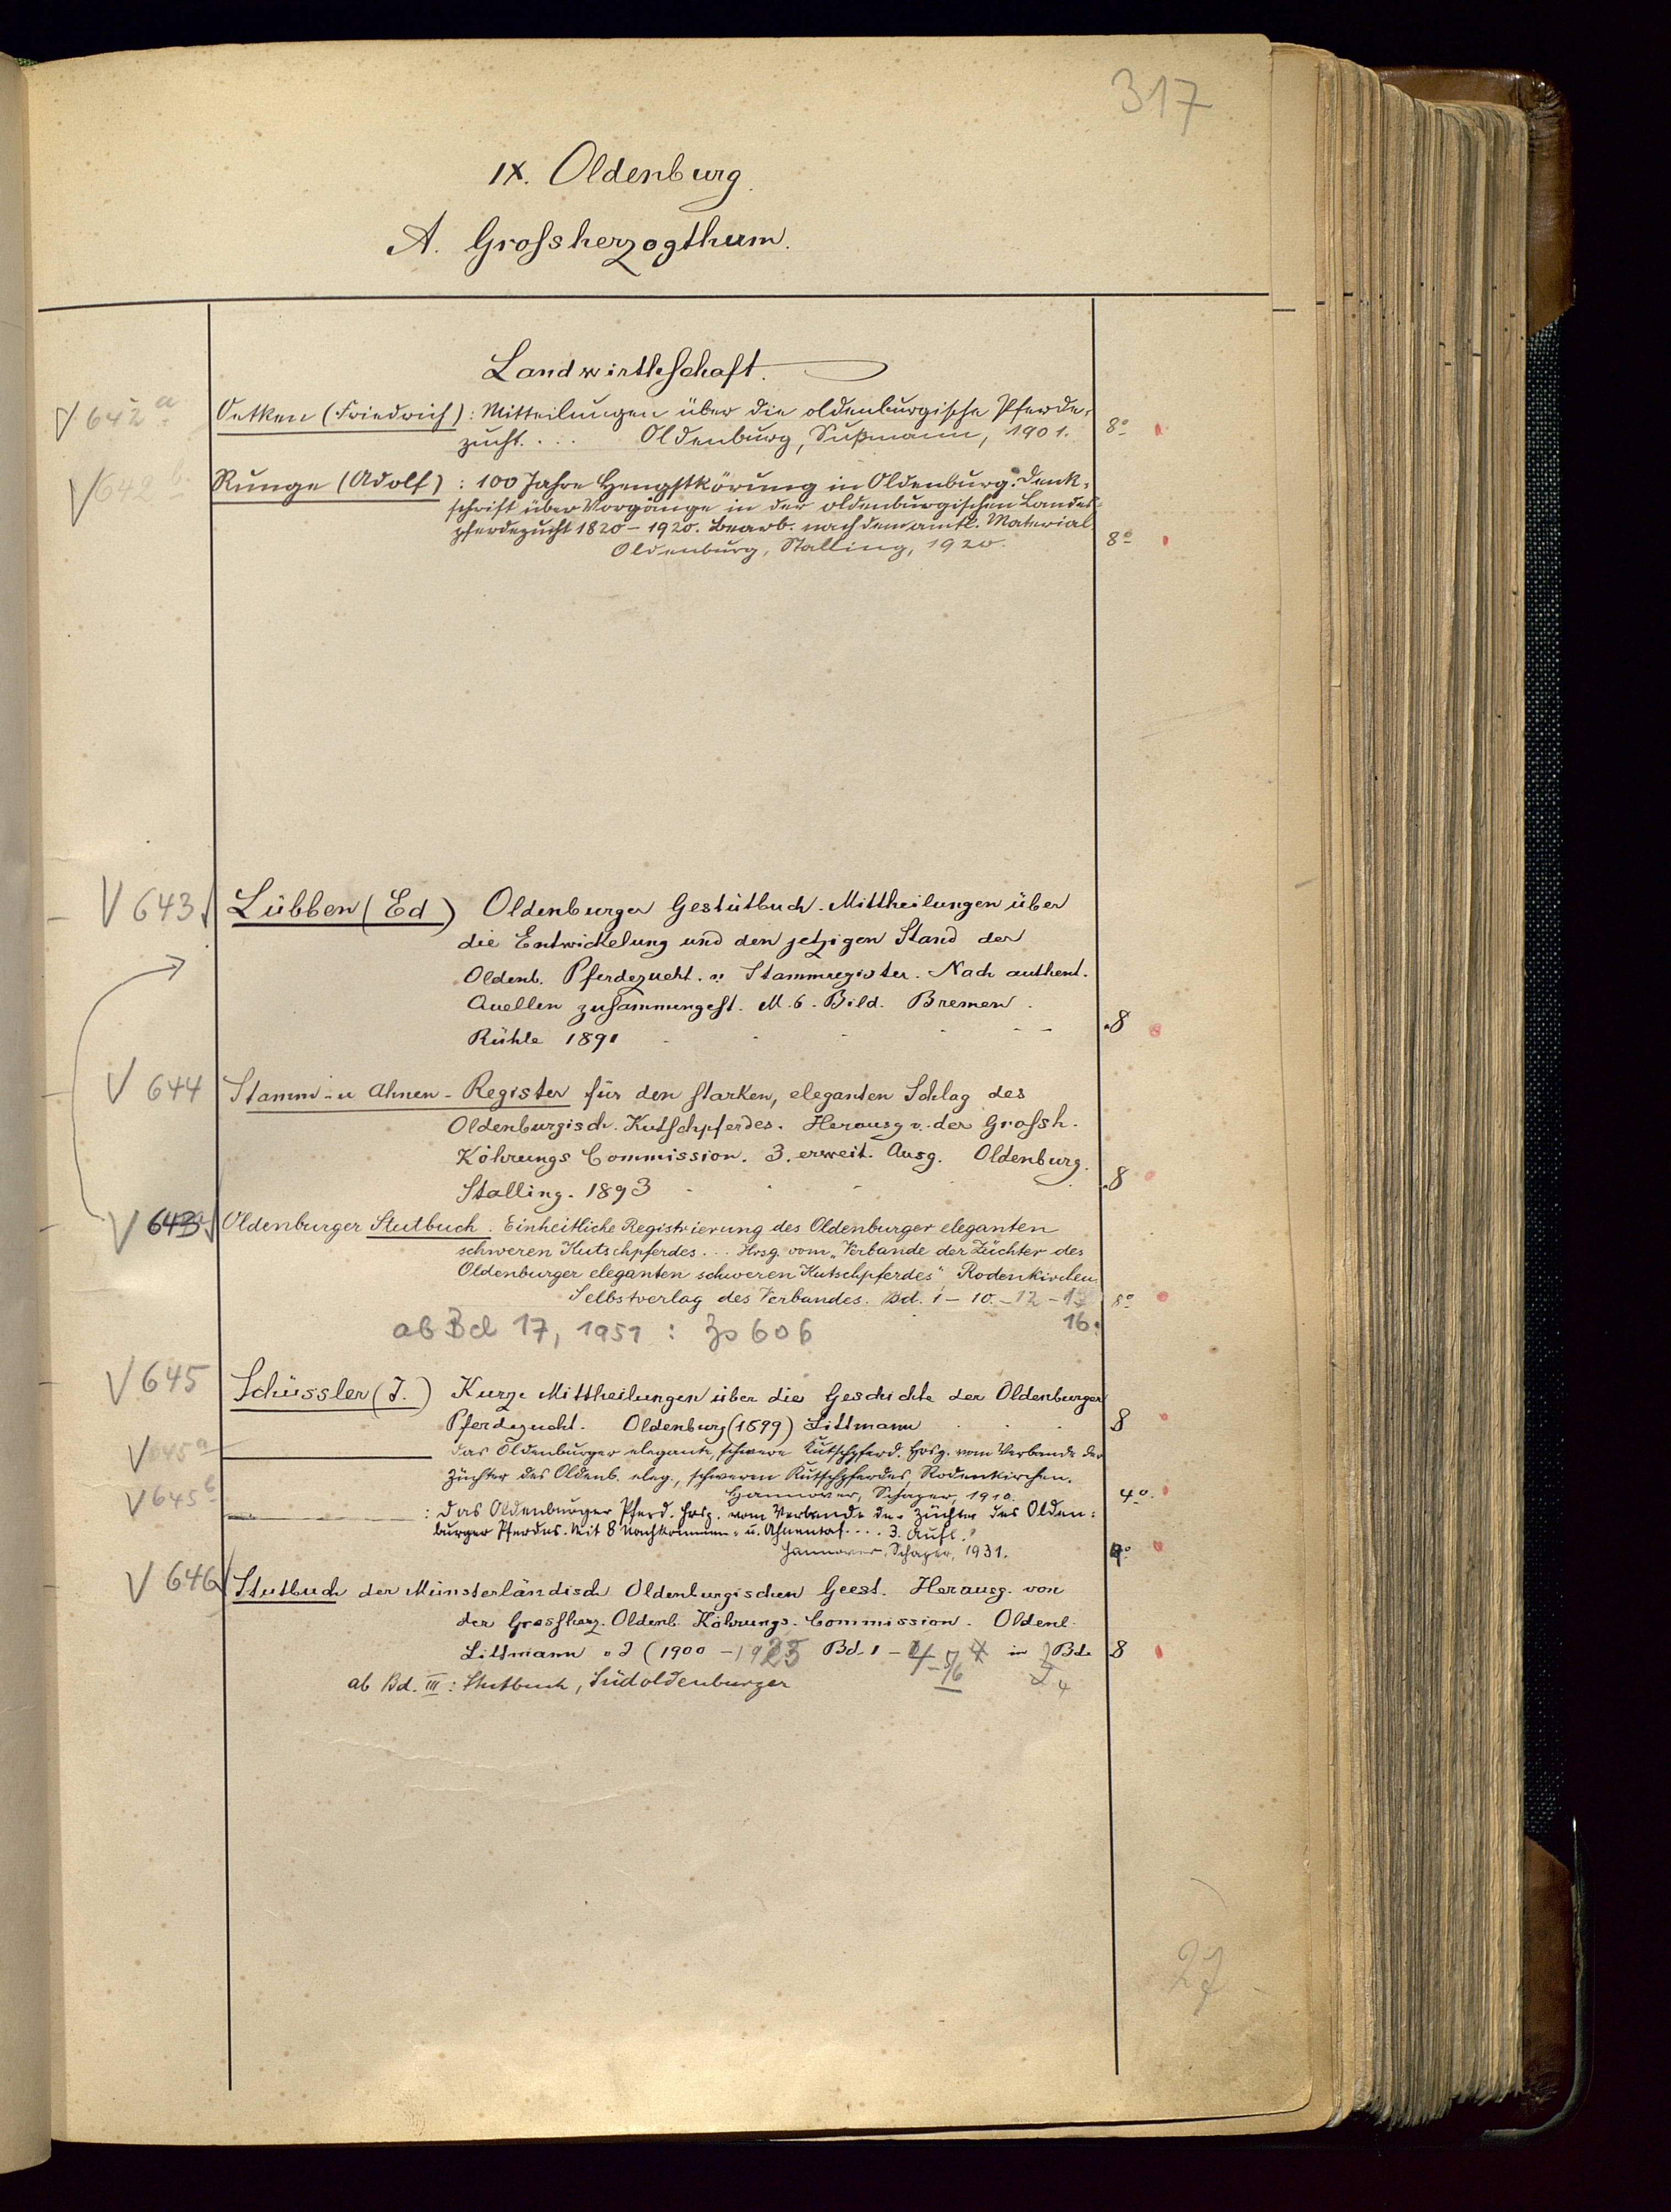 317
IX. Oldenburg.
A. Grossherzogthum.
Landwirthschaft.
V 642 a Oetken (Friedrich): Mitteilungen über die oldenburgische Pferde-
zucht.... Oldenburg, Sußmann, 1901. 8°
V 642 b Runge (Adolf): 100 Jahre Hengstkörung in Oldenburg. Denk-
schrift über Vorgänge in der oldenburgischen Landes-
pferdezucht 1820-1920. Bearb. nach dem amtl. Material
Oldenburg, Stalling, 1920. 8°
V 643 Lübben (Ed) Oldenburger Gestütbuch. Mittheilungen über
die Entwickelung und den jetzigen Stand der
Oldenb. Pferdezucht. u. Stammregister. Nach authent.
Quellen zusammengest. M. 6. Bild. Bremen.
Rühle 1891 8
V 644 Stamm- u Ahnen-Register für den starken, eleganten Schlag des
Oldenburgisch. Kutschpferdes. Herausg v. der Grossh.
Köhrungs Commission. 3. erweit. Ausg. Oldenburg.
Stalling. 1893 8
V 643 Oldenburger Stutbuch. Einheitliche Registrierung des Oldenburger eleganten
schweren Kutschpferdes... Hrsg. vom „Verbande der Züchter des
Oldenburger eleganten schweren Kutschpferdes", Rodenkirchen.
Selbstverlag des Verbandes. Bd. 1-10.-12- 8°
16.
ab Bd 17, 1951: Zs 606
V 645 Schüssler (J.) Kurze Mittheilungen über die Geschichte der Oldenburger
Pferdezucht. Oldenburg (1899) Littmann 8
V 645 a das Oldenburger elegante, schwere Kutschpferd. Hrsg. vom Verbande der
Züchter des Oldenb. eleg., schweren Kutschpferdes, Rodenkirchen.
Hannover, Schaper, 1910. 4°
V 645 b : Das Oldenburger Pferd. Hrsg. vom Verbande der Züchter des Olden-
burger Pferdes. Mit 8 Nachkommen- u. Ahnentaf.... 3. Aufl.
Hannover, Schaper, 1931.
V 646 Stutbuch der Münsterländisch Oldenburgischen Geest. Herausg. von
der Grossherz. Oldenb. Köhrungs-Commission. Oldenb.
Littmann o J (1900-1925 Bd. 1-4-5/6 in Bde 8
ab Bd. III: Stutbuch, Südoldenburger 4
27